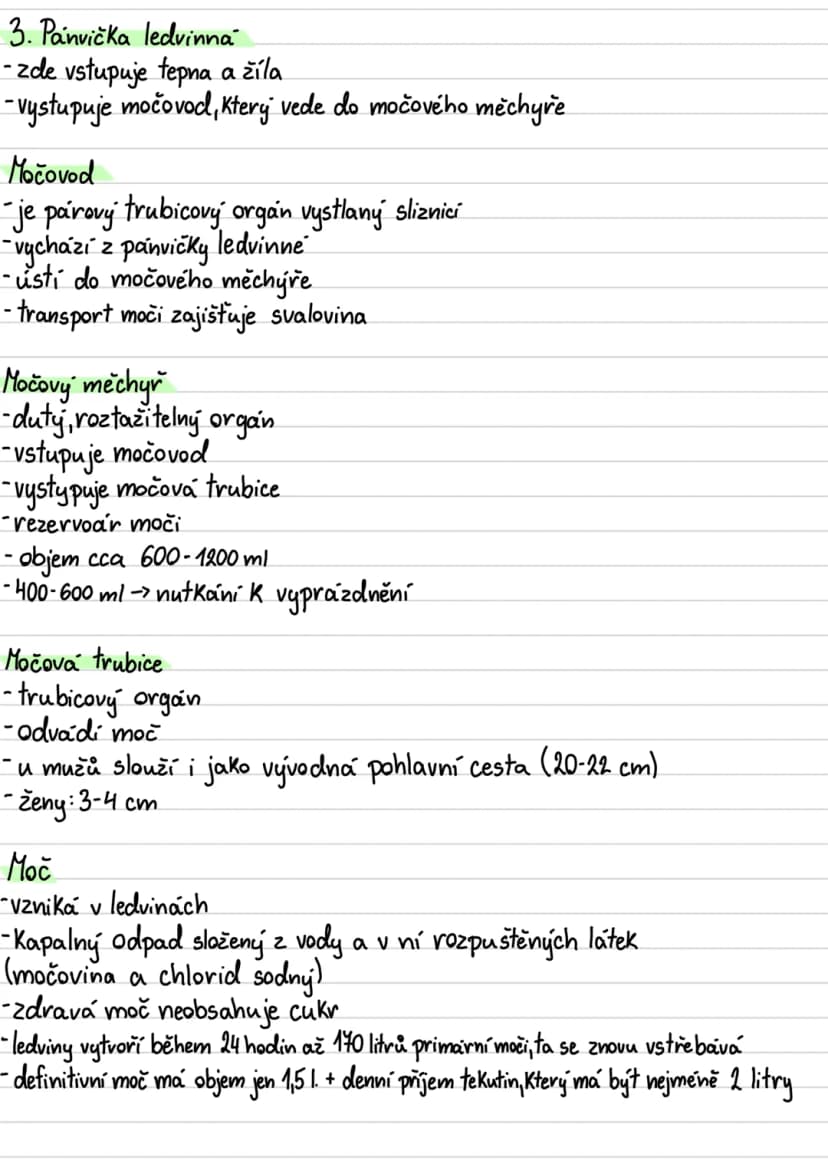 3. Pánvička ledvinná
-zde vstupuje tepna a žíla
-vystupuje močovod, který vede do močového měchyře
Močovod
-je párový trubicový orgán vystlaný sliznicí
-vychází z pánvičky ledvinné
-ústí do močového měchýře
-transport moči zajišťuje svalovina
Močový měchyř
-dutý, roztažitelný orgán
-vstupuje močovod
-vystypuje močová trubice
-rezervoár moči
-objem cca 600-1200 ml
-400-600 ml → nutkání k vyprázdnění
Močová trubice
-trubicový orgán
-odvádí moč
-u mužů slouží i jako vývodná pohlavní cesta (20-22 cm)
-ženy: 3-4 cm
Moč
-vzniká v ledvinách
-kapalný odpad složený z vody a v ní rozpuštěných látek
(močovina a chlorid sodný)
-zdravá moč neobsahuje cukr
-ledviny vytvoří během 24 hodin až 170 litrů primární moči, ta se znovu vstřebává
-definitivní moč má objem jen 1,5 l. + denní příjem tekutin, který má být nejméně 2 litry